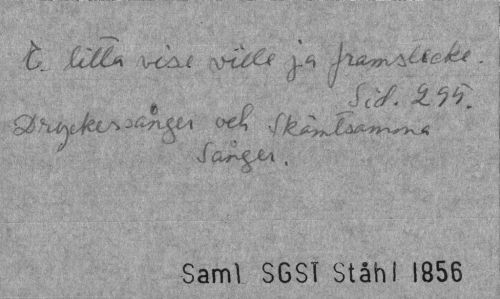 E. litta vise ville ja framstecke.
Sid. 295.
Dryckessånger och Skämtsamma
Sånger.
Saml SGST Ståhl 1856